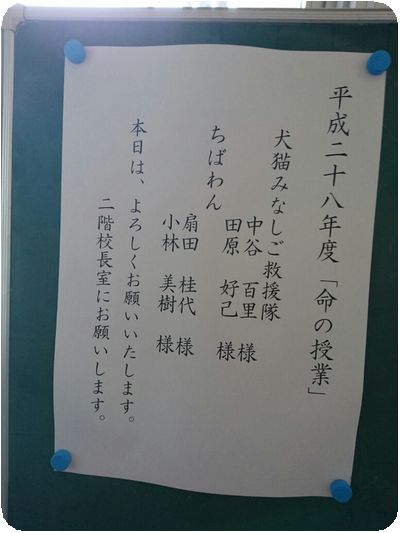 平成二十八年度「命の授業」
犬猫みなしご救援隊
中谷 百里 様
田原 好己 様
ちばわん
扇田 桂代 様
小林 美樹 様
本日は、よろしくお願いいたします。
二階校長室にお願いします。